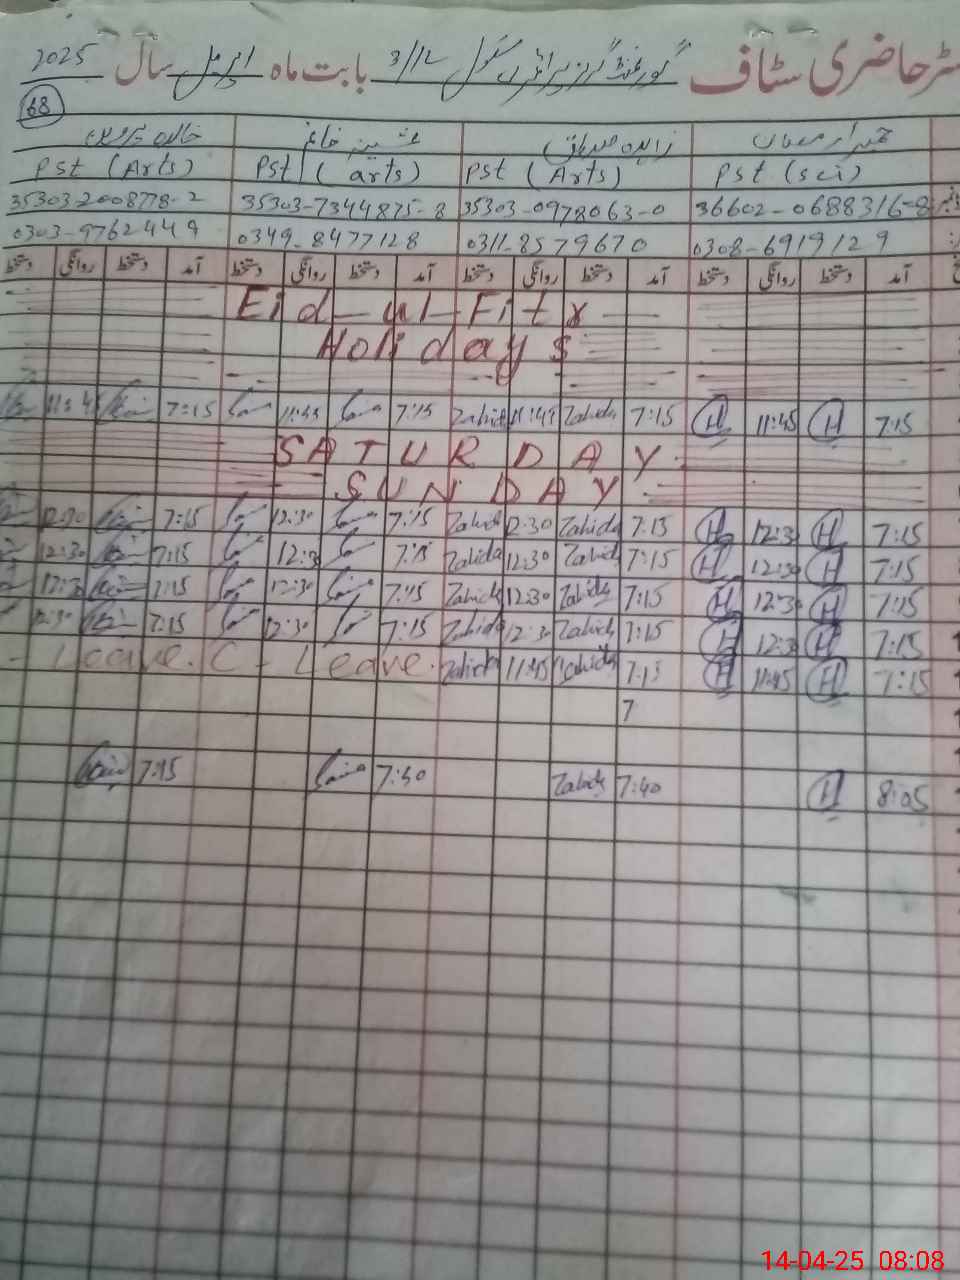 رجسٹر حاضری سٹاف گورنمنٹ گرلز پرائمری سکول 3/1L بابت ماہ اپریل سال 2025
68
زاہدہ صدیق
Pst (sci) Pst (Arts) Pst (arts) Pst (Arts)
36602-0688316-8 35303-0978063-0 35303-7344875-8 35303-2008778-2
0308-6919129 0311-8579670 0349-8477128 0303-9762449
آمد دستخط روانگی دستخط آمد دستخط روانگی دستخط آمد دستخط روانگی دستخط آمد دستخط روانگی دستخط
Eid-ul-Fitr
Holidays
7:15 H 11:45 H 7:15 Zahida 11:45 Zahida 7:15 11:45 7:15 11:45
SATURDAY
SUNDAY
7:15 H 12:30 H 7:15 Zahida 12:30 Zahida 7:15 12:30 7:15 12:30
7:15 H 12:30 H 7:15 Zahida 12:30 Zahida 7:15 12:30 7:15 12:30
7:15 H 12:30 H 7:15 Zahida 12:30 Zahida 7:15 12:30 7:15 12:30
7:15 H 12:30 H 7:15 Zahida 12:30 Zahida 7:15 12:30 7:15 12:30
7:15 H 11:45 H 7:15 Zahida 11:45 Zahida C-Leave. Leave.
7
8:05 H 7:40 Zahida 7:40 7:15
14-04-25 08:08